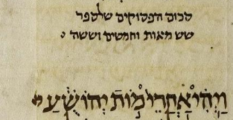 סכום הפסוקים שלספר
שש מאות וחמשים וששה
וַיְהִי אַחֲרֵי מוֹת יְהוֹשֻׁעַ